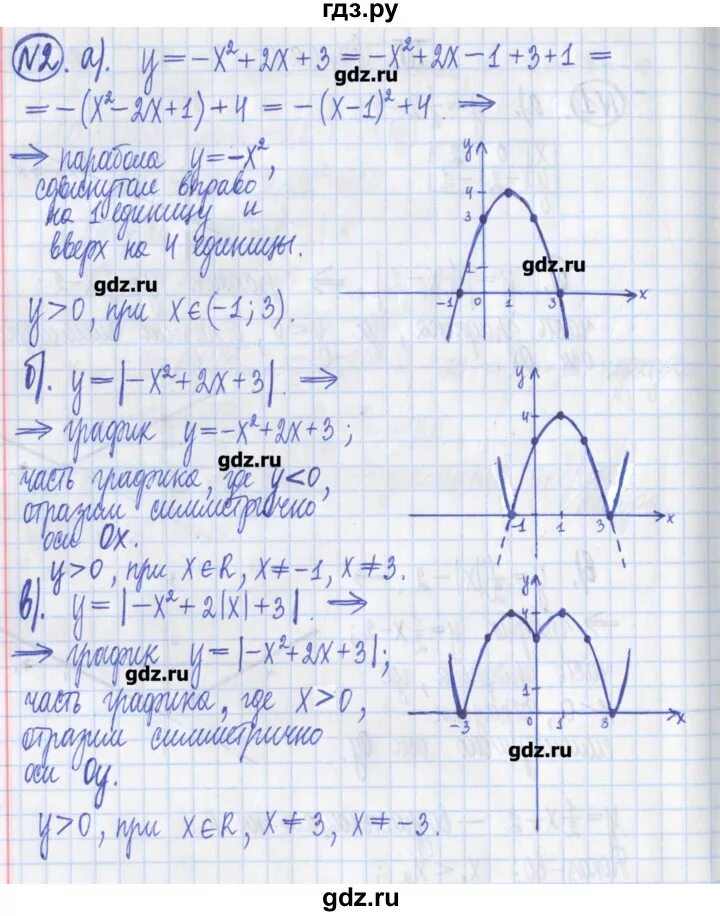 гдз.ру
№2. а). y = -x² + 2x + 3 = -x² + 2x - 1 + 3 + 1 =
gdz.ru
= -(x² - 2x + 1) + 4 = -(x - 1)² + 4. ⟹
gdz.ru
⟹ парабола y = -x²,
сдвинутая вправо
на 1 единицу и
вверх на 4 единицы.
gdz.ru
y > 0, при x ∈ (-1; 3).
y
4
3
1
gdz.ru
-1 0 1 3 x
б). y = |-x² + 2x + 3|. ⟹
⟹ график y = -x² + 2x + 3;
gdz.ru
часть графика, где y < 0,
отразим симметрично
оси Ox.
y > 0, при x ∈ R, x ≠ -1, x ≠ 3.
y
4
-1 1 3 x
в). y = |-x² + 2|x| + 3|. ⟹
⟹ график y = |-x² + 2x + 3|;
gdz.ru
часть графика, где x > 0,
отразим симметрично
оси Oy.
y > 0, при x ∈ R, x ≠ 3, x ≠ -3.
y
4
1
-3 0 1 3 x
gdz.ru
gdz.ru